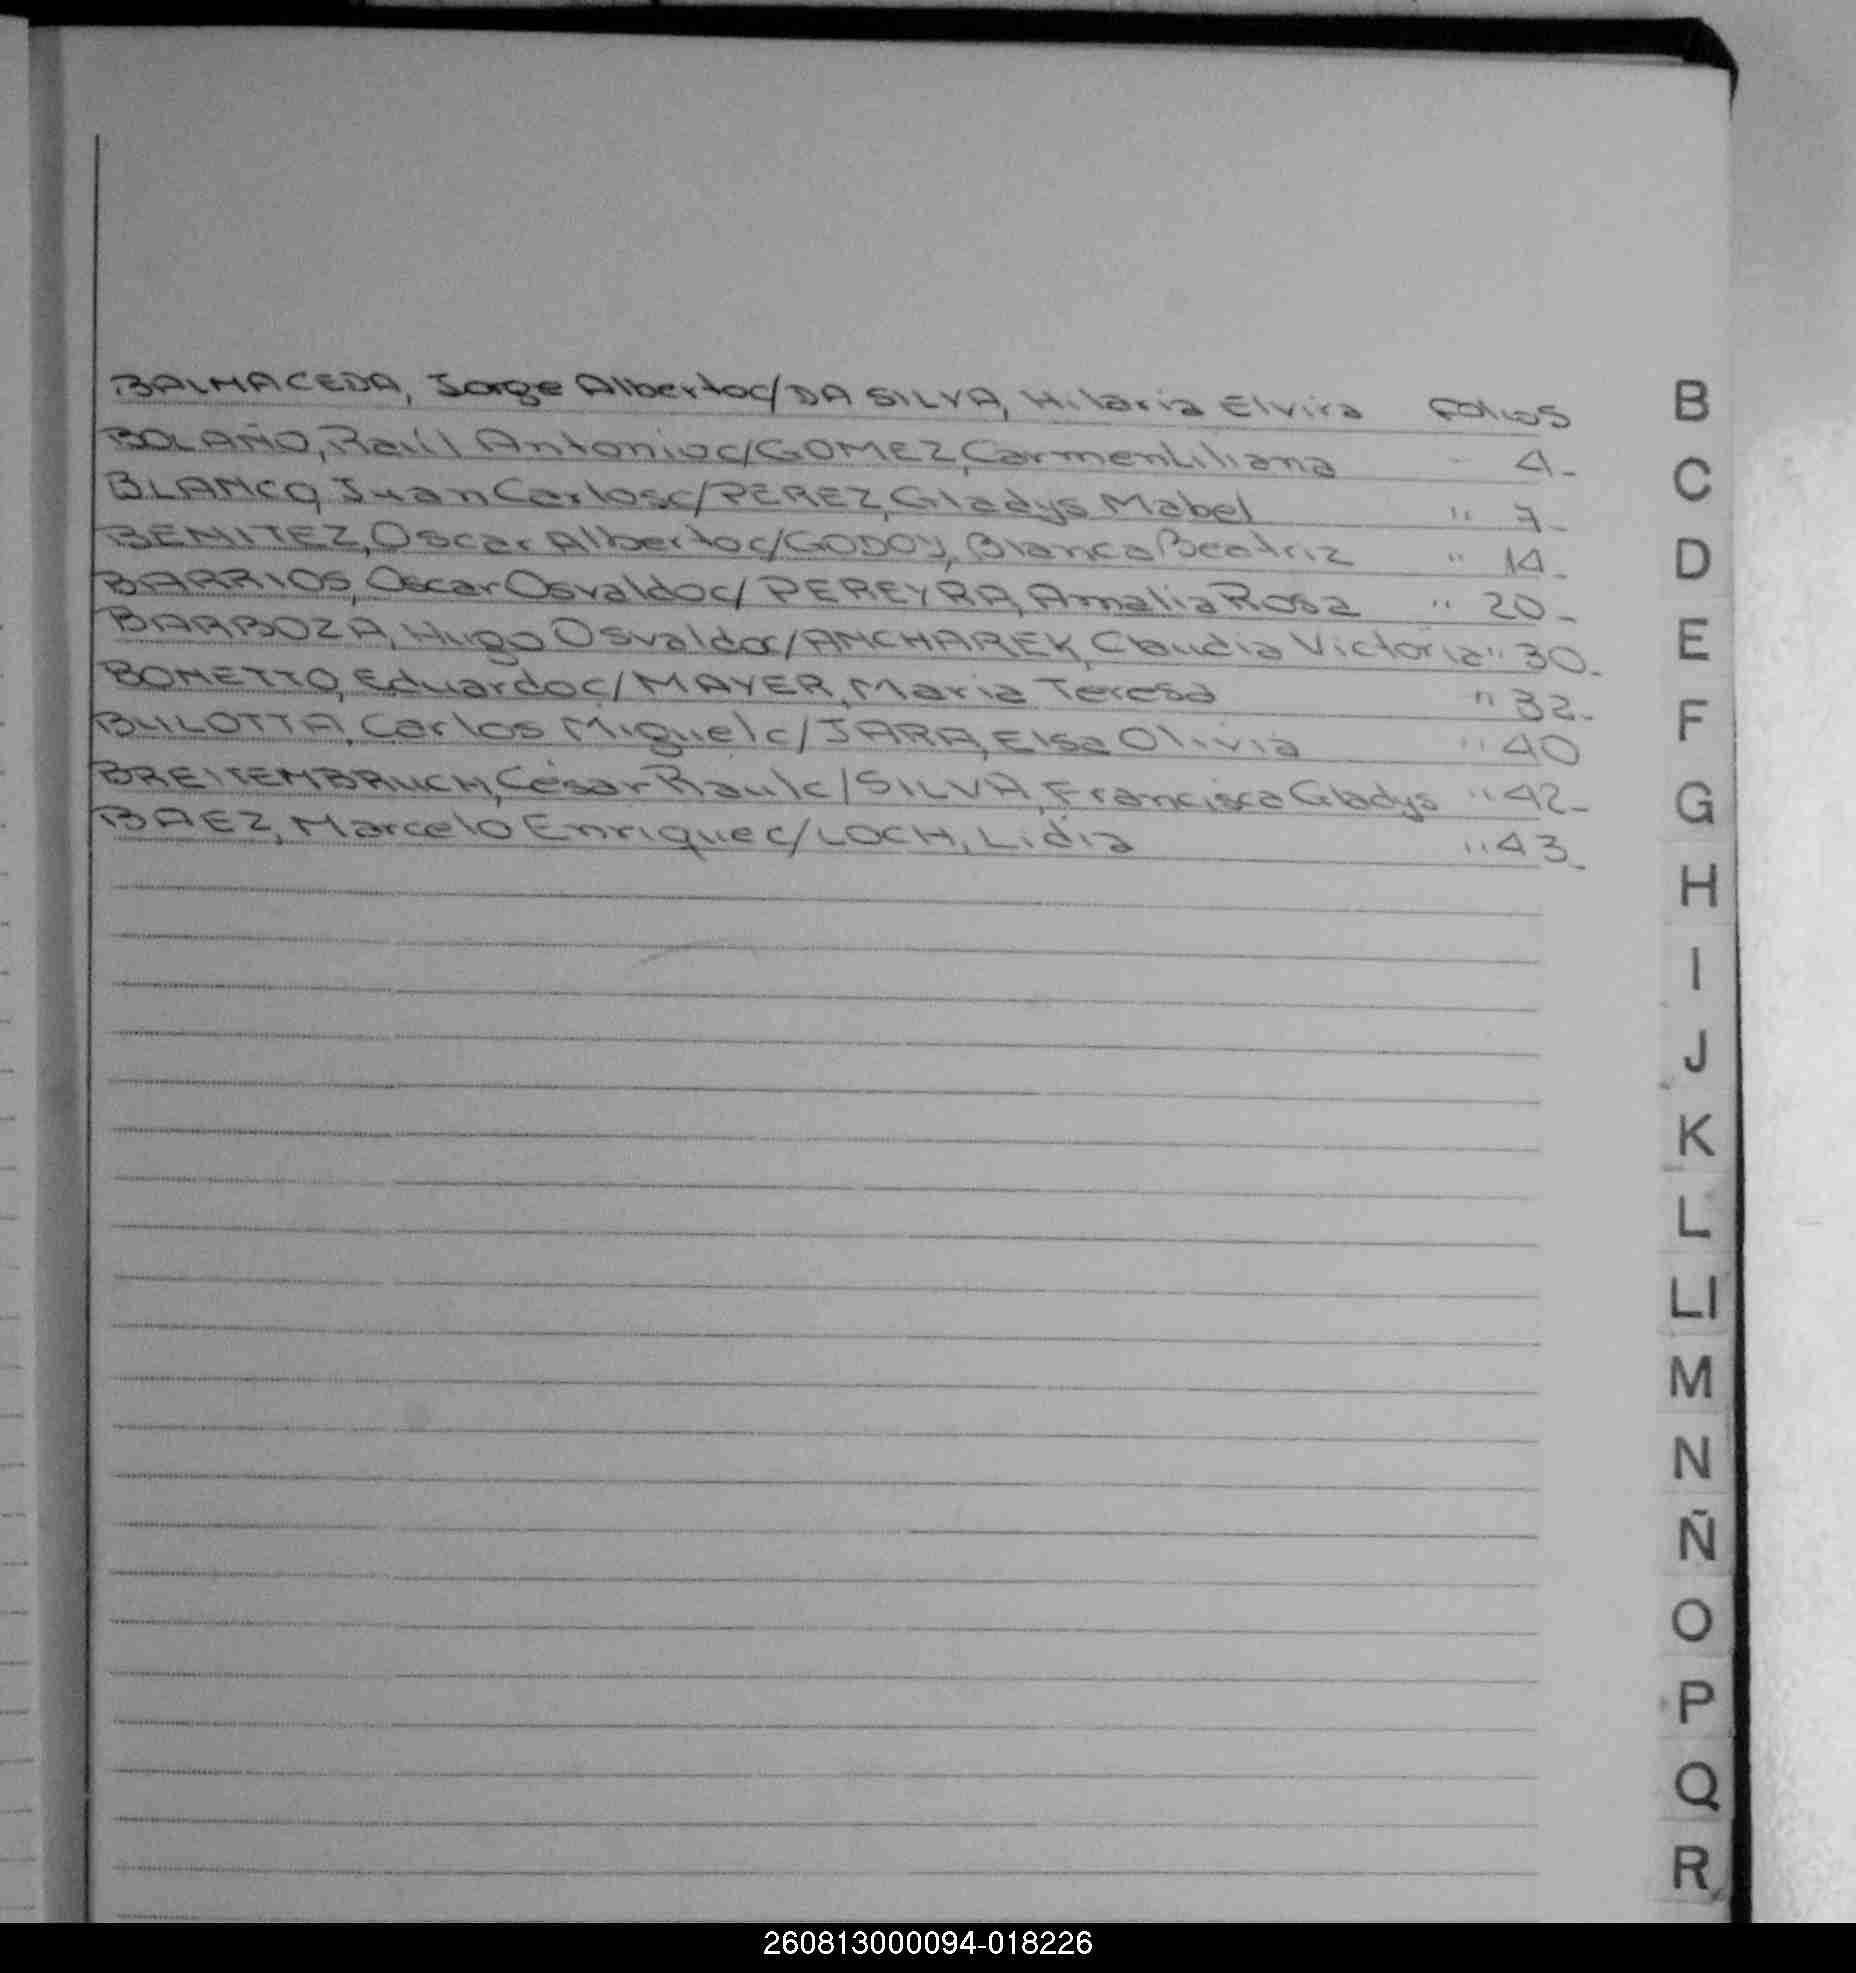 BALMACEDA, Jorge Alberto c/ DA SILVA, Hilaria Elvira Folios
BOLAÑO, Raúl Antonio c/ GOMEZ, Carmen Liliana 4-
BLANCO, Juan Carlos c/ PEREZ, Gladys Mabel " 7-
BENITEZ, Oscar Alberto c/ GODOY, Blanca Beatriz " 14-
BARRIOS, Oscar Osvaldo c/ PEREYRA, Amalia Rosa " 20-
BARBOZA, Hugo Osvaldo c/ ANCHAREK, Claudia Victoria " 30-
BONETTO, Eduardo c/ MAYER, Maria Teresa " 32-
BULOTTA, Carlos Miguel c/ JARA, Elsa Olivia " 40
BREITEMBRUCH, César Raul c/ SILVA, Francisca Gladys " 42-
BAEZ, Marcelo Enrique c/ LOCH, Lidia " 43-
B
C
D
E
F
G
H
I
J
K
L
Ll
M
N
Ñ
O
P
Q
R
260813000094-018226